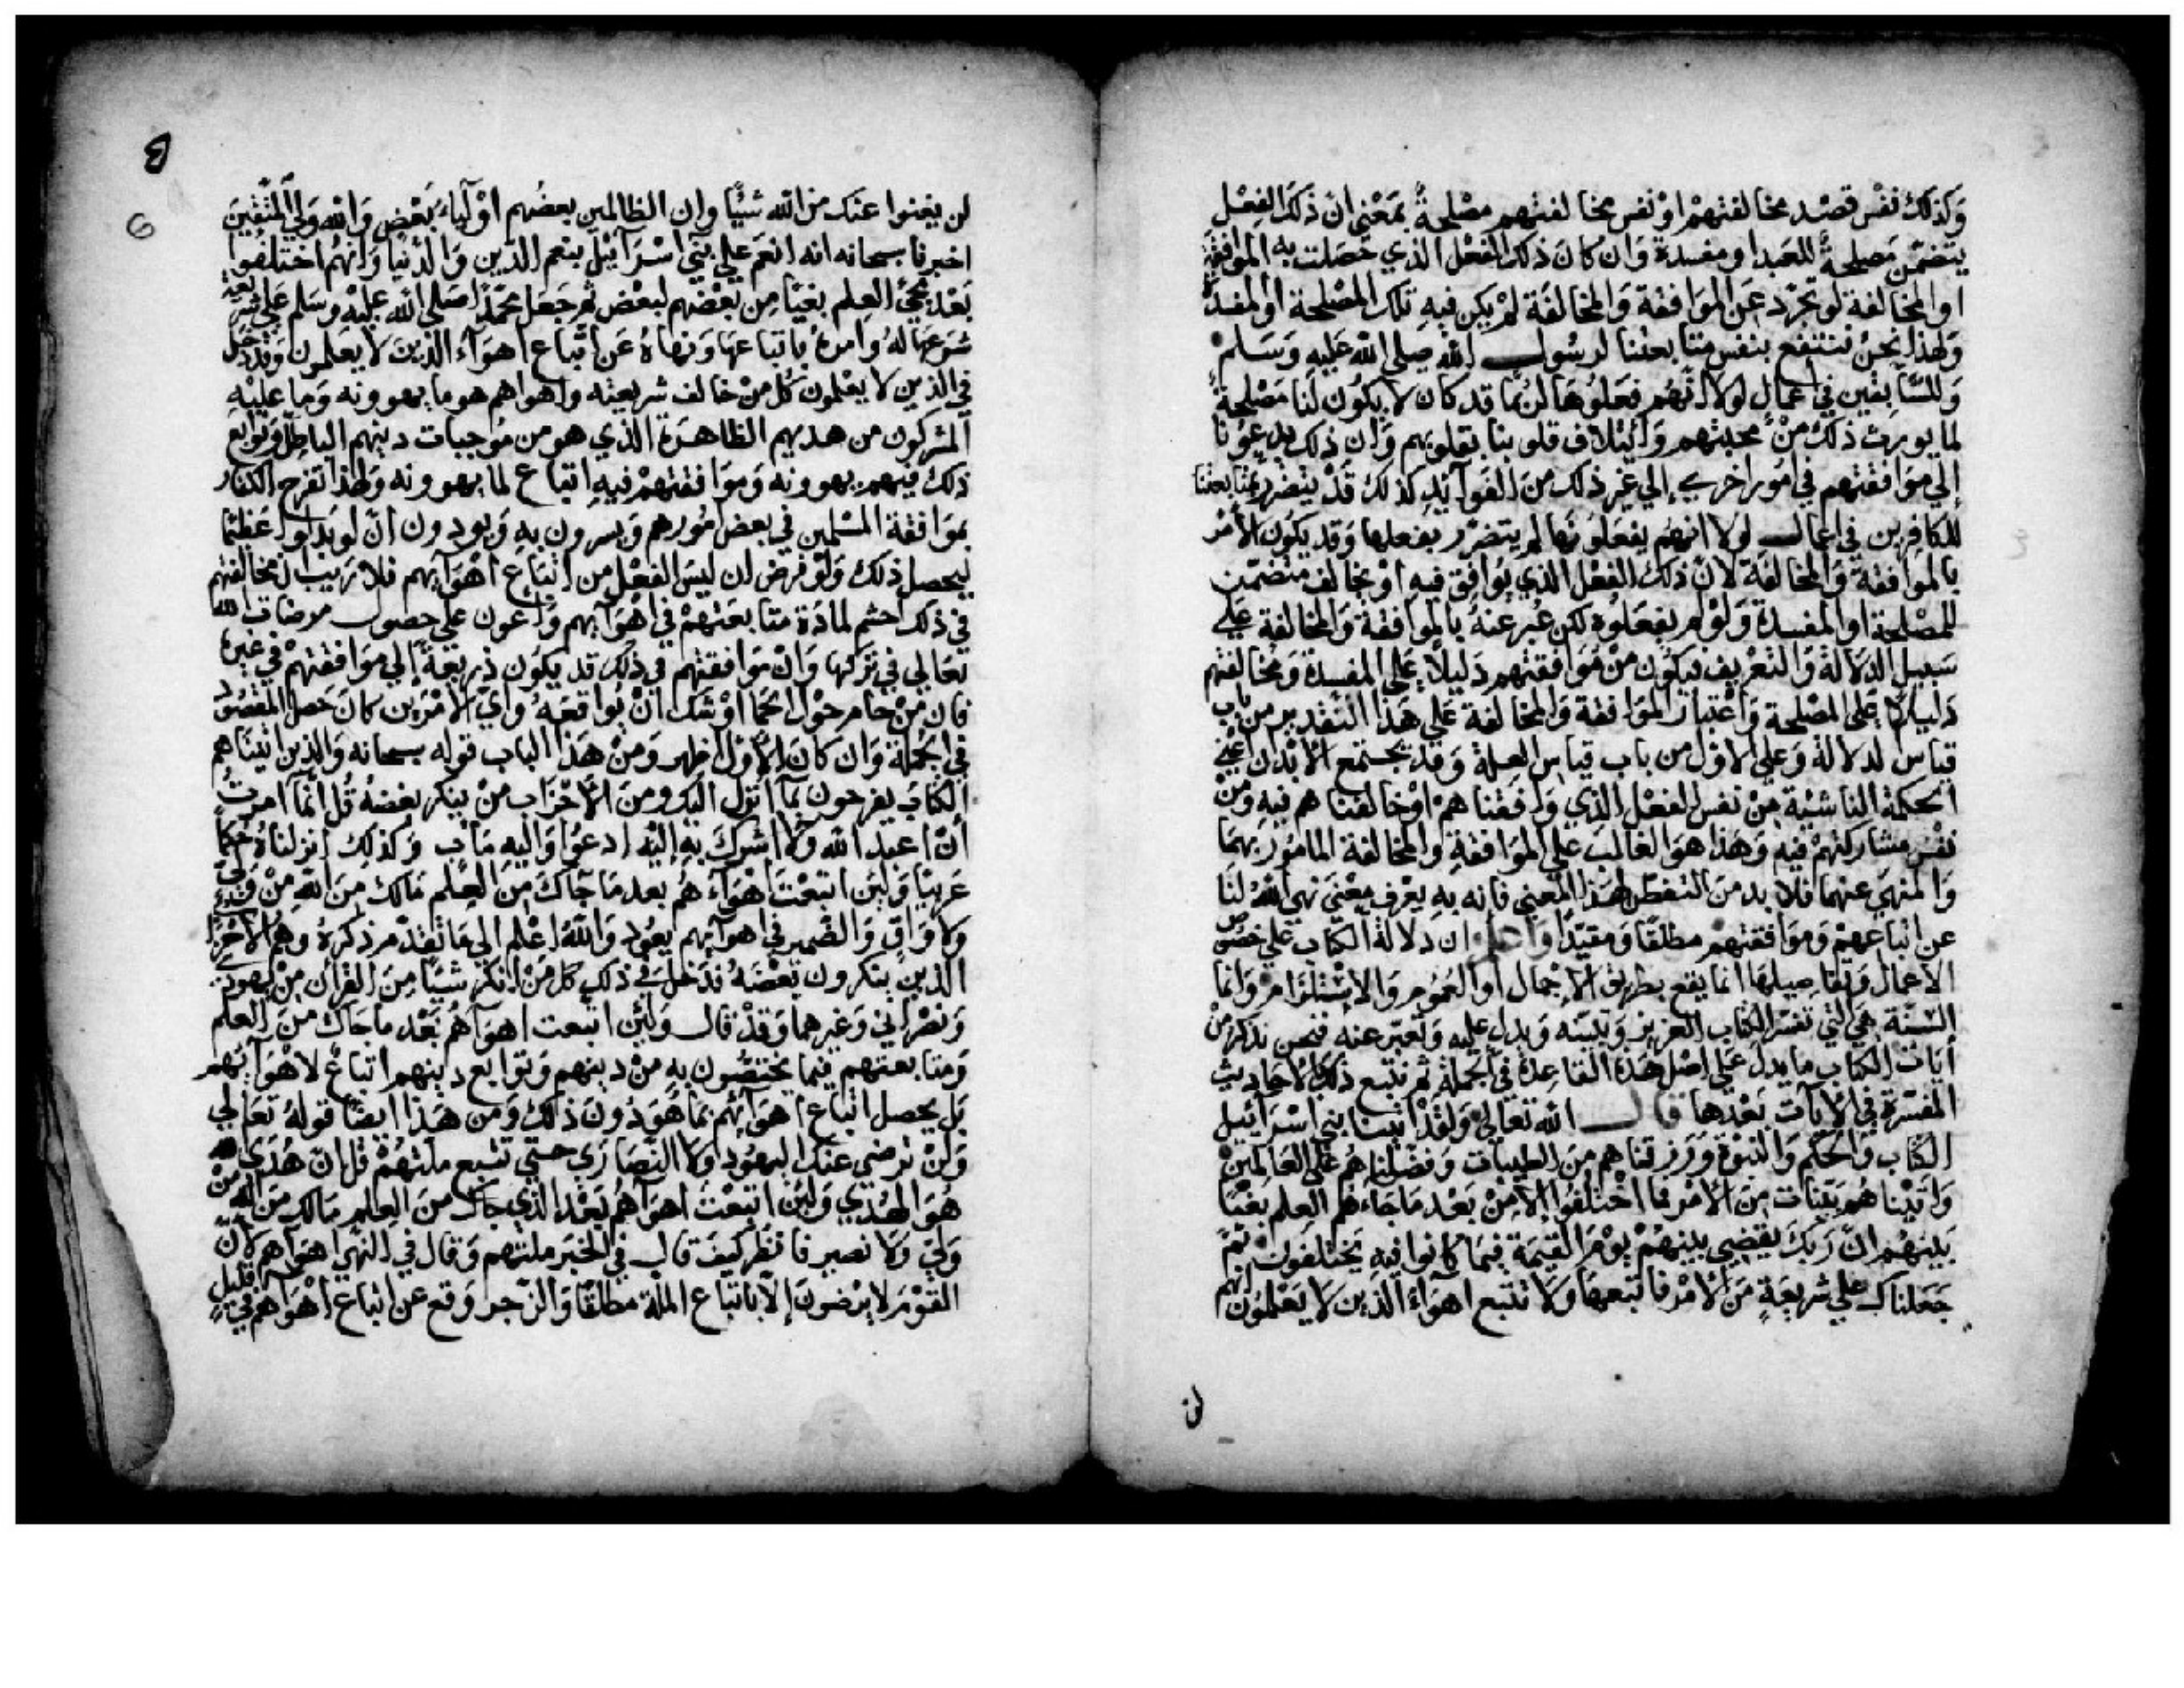 وَكذلكَ نفْس قصْد مخالفتهمْ اوْ نفس مخالفتهم مصْلحةٌ بمَعْنى انّ ذلكَ الفِعْل
يتضمّن مَصلحةً للعَبد او مفسدة وَان كانَ ذلك الفعْل الذي حَصَلت به الموافقة
او المخالفة لو تجرّد عَن الموَافقة وَالمخالفَة لمْ يكن فيهِ تلك المصْلحة او المفسدَة
وَلهذا نحنُ ننتفع بنفس متابعتنا لرسُول الله صلى الله عَليهِ وَسَلم
وَللسَّابقين في اعمالٍ لولا انّهُم فعَلوُهَا لربّمَا قد كان لا يكوُن لَنا مَصْلحةً
لما يورث ذلكَ منْ محبتهم وَائتلاف قلوبنا بقلوبهم وَان ذلك يدعوُنا
إلي موَافقتهم في امُور اخري إلي غير ذلك منَ الفوَآئِدِ كذلكَ قَدْ يتضرّر بمتابعتنا
للكافرين في اعمال لولا انهُم يفعَلوُنهَا لم يتضرّر بفعلها وَقد يكوُن الأمْر
بالموافقة وَالمخالفة لانّ ذلك الفعْل الذي يُوافق فيهِ اوْ يخالف متضمّن
للمصْلحة او المفسدة وَلوْ لم يفعَلوُه لكن عُبر عنهُ بالموافقة وَالمخالفة علي
سَبيل الدلالة وَالتعْريف فيكوُن منْ مُوَافقتهم دَليلاً علي المفسدة وَمخالفتهم
دَليلاً عَلى المصْلحة وَاعْتبار الموَافقة وَالمخالفة عَلي هَذا التقدير من باب
قيَاس الدلالة وَعلي الاوّل من باب قياس العلة وَقد يجتمع الأمران اعْني
الحكمة الناشئة مِنْ نفس الفعْل الذي وَافقنا همْ اوْ خالفنا هم فيهِ وَمنْ
نفس مشاركتهمْ فيهِ وَهذا هوَ الغالبَ علي الموَافقةِ وَالمخالفة المامُوْر بهمَا
وَالمنهيّ عنهما فلا بد منَ التفطن لهذا المعني فانه بهِ يعْرف معْني نهي الله لنا
عن اتباعهمْ وَموَافقتهمْ مطلقًا وَمقيدًا وَاعلم ان دلالة الكتاب علي خصُوص
الاعمال وَتفاصيلهَا انما يقع بطريق الاجْمال او العُموم وَالاسْتلزام وَانما
السّنة هيَ التي تفسّر الكتاب العزيز وَتبيّنه وَتدل عليه وَتعبّر عنه فنحن نذكر منْ
آيَات الكتاب ما يدل عَلي اصْل هَذه القاعدة في الجملة ثم نتبع ذلكَ الاحاديث
المفسّرة في الايات بَعْدها قال الله تعَالي وَلقدْ آتينا بني اسْرآئيل
الكتاب وَالحكم وَالنبوّة وَرَزقناهم منَ الطيبات وَفضلناهُم علي العَالمينْ
وَاتيْناهُم بَيّنات منَ الأمْر فما اخْتلفوُا إلا مِنْ بَعْد مَا جَاءَهُم العلم بغيًا
بَينهُم انّ رَبكَ يقضي بينهُمْ يوْمَ القيمَة فيمَا كانوا فيهِ يَختلفوُن ثمّ
جَعَلناك علي شريعَةٍ منَ الأمْر فاتّبعها وَلا تتبع اهوَاءَ الذين لا يَعْلموُن انهم
ن
3
6
لن يغنوا عنك من الله شيئًا وان الظالمين بعضُهم اوْليَآء بَعْض وَالله وَليّ المتّقين
اخبرنا سبحانه انه انعَم علي بني اسْرَآئيل بنعم الدّين وَالدّنيا وَانهُم اختلفُوا
بَعْد مجيْ العِلم بغيًا مِن بَعْضهم لبعْض ثم جَعَل محمّدًا صَلي الله عليْه وسَلم عَلي شريعَة
شرَعهَا لهُ وَامرهُ باتباعهَا وَنهاهُ عَن اتّباع اهوَاءَ الذينَ لا يعَلمون وَقد دخَل
في الذين لا يعْلمون كل منْ خالف شريعته واهواهم هو ما يهوونه وَما عليْهِ
المشركون من هديهم الظاهرَة الذي هو من مُوجبات دينهم الباطل وَتوابع
ذلك فيهم يهوونه وَموَافقتهمْ فيهِ اتباع لما يهوونه وَلهذا تفرح الكفار
بموَافقة المسْلمين في بعض امُورهم وَيسرون به وَيودون ان لو بذلوا عَظيمًا
ليحصل ذلك وَلوْ فرض ان ليسَ الفعْل من اتباع اهْوَآئهم فلا ريبَ ان مخالفتهم
في ذلك احسم لمادَة متابعَتهمْ في اهْوَآئهم وَاعون علي حصول مرضات الله
تعَالي في ترْكها وَانْ موَافقتهم في ذلك قد يكوُن ذريعَة إلي موَافقتهمْ في غيره
فان منْ حام حوْل الحمَا اوْشك انْ يُوَاقعَهُ وَايّ الامْرَين كانَ حَصل المقصُود
في الجُملة وَان كانَ الأوّل اظهر وَمنْ هَذا الباب قوله سبحانه وَالذين اتيناهم
الكتابَ يفرحون بمآ انزل اليك ومنَ الأحْزاب منْ ينكر بعْضهُ قل انمَآ امرتُ
أنْ اعبد الله وَلا اشركَ بهِ إليْهِ ادعوُا وَاليهِ مَآب وَكذلِكَ انزلناهُ حُكمًا
عَربيًا وَلئن اتبعْتَ اهْوَآءهُم بعد مَا جَآكَ مِنَ العِلم مَالكَ مِنَ الله مِنْ وَليٍّ
وَلا وَاقٍ وَالضّمير في اهوآئهم يَعوُد وَاللهُ اعْلم الي مَا تقدّم ذكرهُ وَهم الاحْزاب
الذين ينكرون بَعْضهُ فدَخل في ذلك كل منْ انكرَ شيئًا منَ القرآن منْ يهودي
وَنصْرانيّ وَغيرهما وَقدْ قال وَلئن اتبعت اهوآهُم بَعْد ما جاكَ منَ العِلم
وَمتابعتهم فيما يختصُّون بهِ منْ دينهم وَتوابع دينهم اتباعٌ لاهْوَآئهُم
بَل يحصل اتباع اهوَآئهُم بمَا هُوَ دُونَ ذلكَ وَمن هَذا ايضًا قولهُ تعَالي
وَلنْ ترضي عنكَ اليهُود وَلا النّصَارَي حتّي تتبع ملتهُمْ قل انّ هُدَي الله
هُوَ الهُدي وَلئن اتبعْتَ اهوَآهُم بَعْد الذي جاك منَ العِلم مَالك منَ الله منْ
وَليّ وَلا نصير فانظر كيفَ قال في الخبَر ملتهم وَقال في النّهي اهوَآهم لأنّ
القوْمَ لا يرْضونَ إلاّ باتبَاع الملة مطلقًا وَالزّجر وَقع عن اتباع اهْوَآهم في قليل